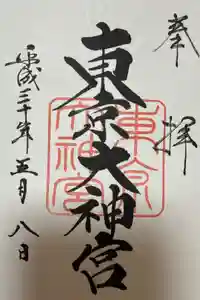 奉拝
東京大神宮
平成三十年五月八日
東京大神宮